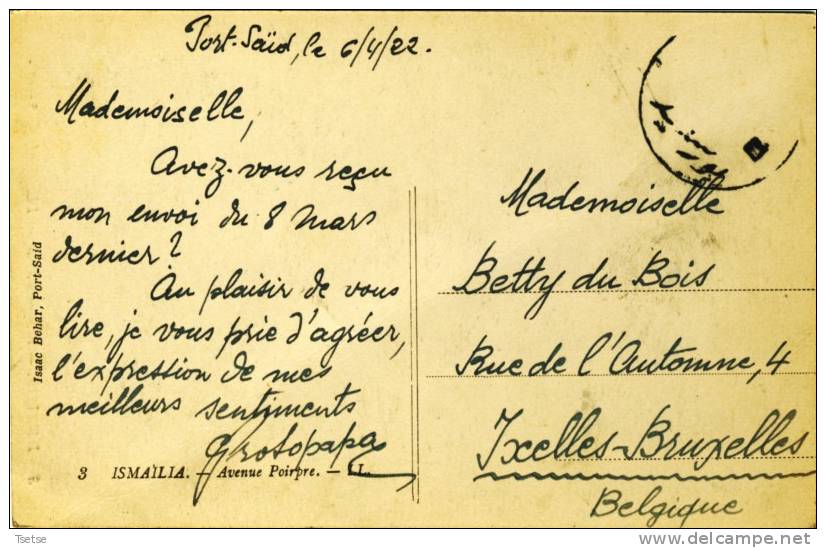 Port-Saïd, le 6/4/22.
Mademoiselle,
Avez-vous reçu
mon envoi du 8 Mars
dernier?
Au plaisir de vous
lire, je vous prie d'agréer,
l'expression de mes
meilleurs sentiments
Grosopapas
3 ISMAÏLIA. — Avenue Poirpre. — LL.
Isaac Behar, Port-Said
Mademoiselle
Betty du Bois
Rue de l'Automne, 4
Ixelles-Bruxelles
Belgique
Tsetse
delcampe.net